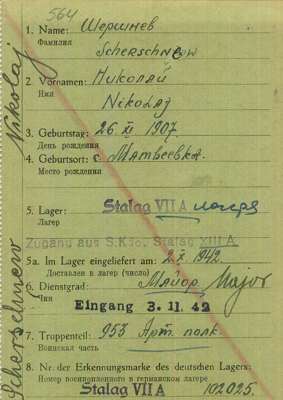 564
1. Name: Шершнев
Фамилия Scherschnew
2. Vornamen: Николай
Имя Nikolaj
3. Geburtstag: 26 XI 1907.
День рождения
4. Geburtsort: с. Матвеевка.
Место рождения
5. Lager: Stalag VII A
Лагерь
Zugang aus S.Kdo. Stalag XIII A
5a. Im Lager eingeliefert am: 2.X. 1942
Доставлен в лагерь (число)
6. Dienstgrad: Майор Major
Чин
Eingang 3. 11. 42
7. Truppenteil: 953 Арт. полк.
Воинская часть
8. Nr. der Erkennungsmarke des deutschen Lagers:
Номер военнопленного в германском лагере
Stalag VII A 102025.
Scherschnew Nikolaj